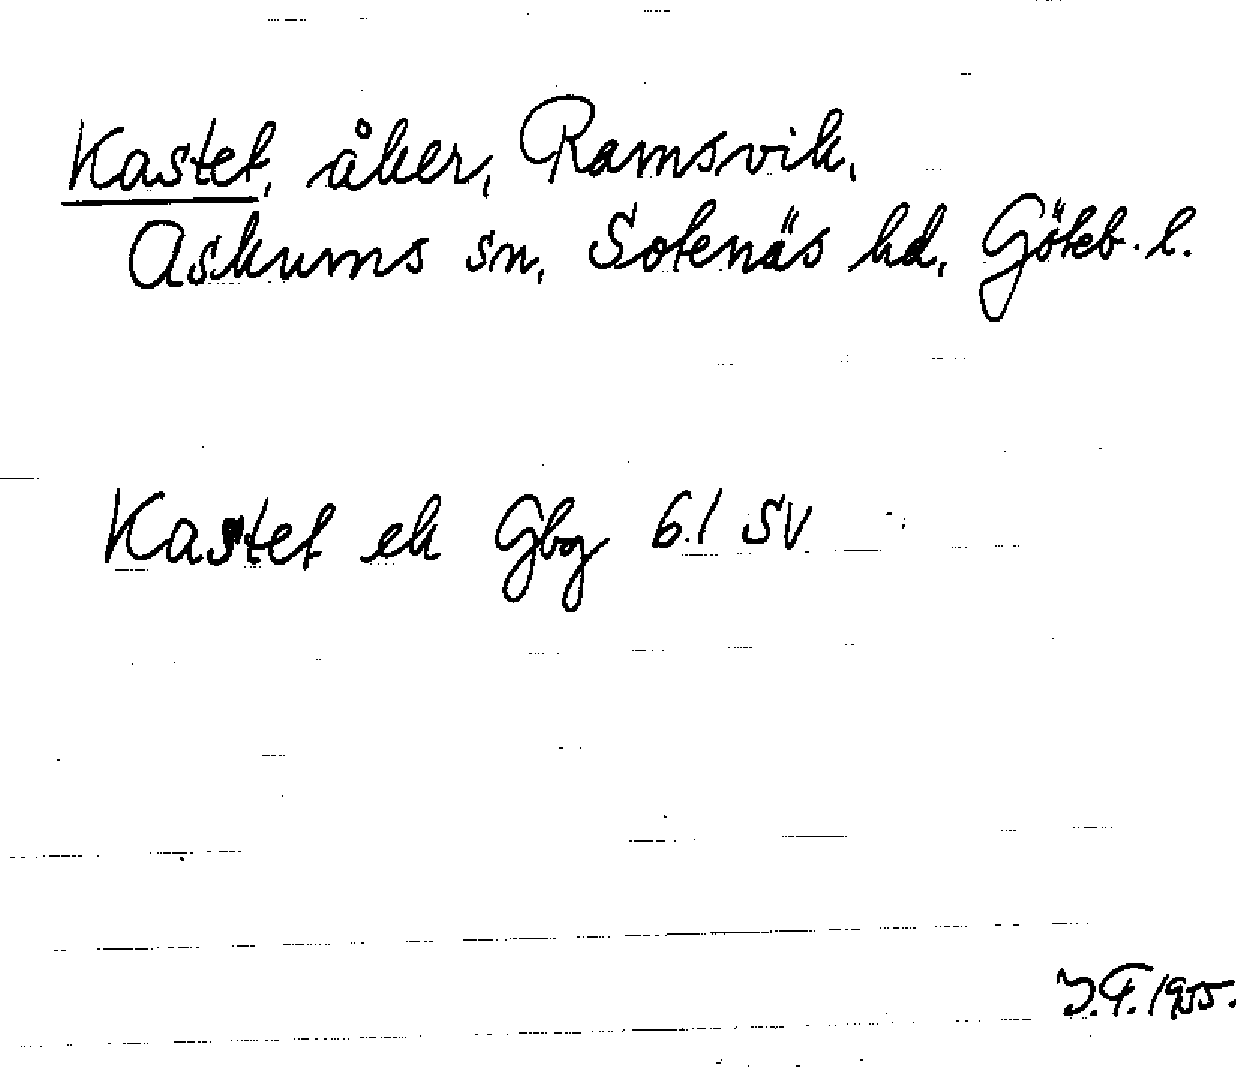 Kastet, åker, Ramsvik,
Askums sn, Sotenäs hd, Göteb. l.
Kastet ek Gbg 61 SV
J.F. 1955.